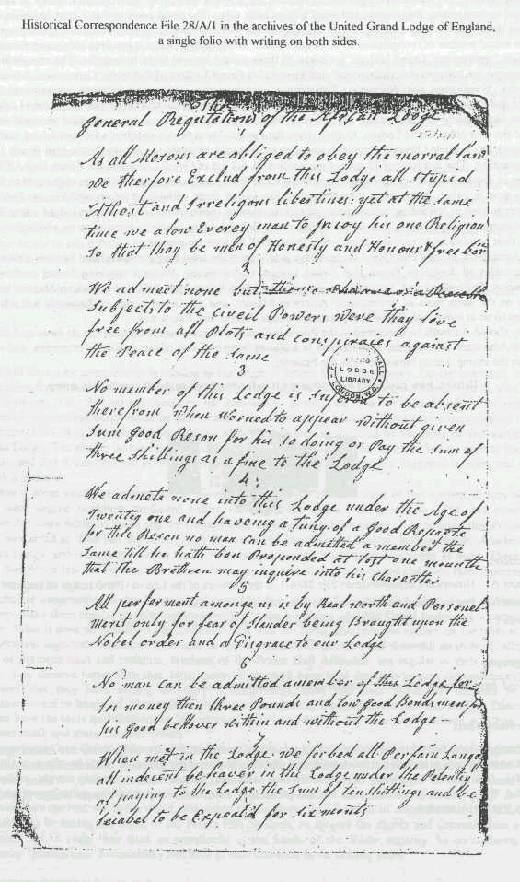 Historical Correspondence File 28/A/1 in the archives of the United Grand Lodge of England,
a single folio with writing on both sides.
The
General Regulations of the African Lodge
As all Mesons are obligied to obey the morral law
we therfore Exclud from this Lodge all stupid
Athost and Irreligous libertines: yet at the same
time we alow Everey man to Injoy his one Religion
So that they be men of Honesty and Honour & free bor
2
We admeet none but
Subjects to the civeil Powers were they live
free from all Plots and conspiracies against
the Peace of the Same
3
No member of this Lodge is to be absent
therefrom when worned to appear without given
Sum good Reson for his so doing or Pay the Sum of
three Shillings as a fine to the Lodge
4
We admete none into this Lodge under the Age of
Twenty one and haveing a of a good Reporte
for this Reson no man can be admitted a member the
Same till he hath ben Proponded at lest one mounth
that the Brethren may inquire into his Charater
5
All perferment amongs us is by Real worth and Personel
merit only for fear of Slander being Brought upon the
Nobel order and a Disgrace to our Lodge
6
No man can be admitted a member of this Lodge for
in money then three Pounds and tow good Bondsmen for
his good behaver within and without the Lodge
7
When met in the Lodge we forbed all Perfain Lango
all indecent behaver in the Lodge under the Penelty
of paying to the Lodge the Sum of ten Shillings and be
leiabel to be Expeal'd for six months
LODGE
LIBRARY